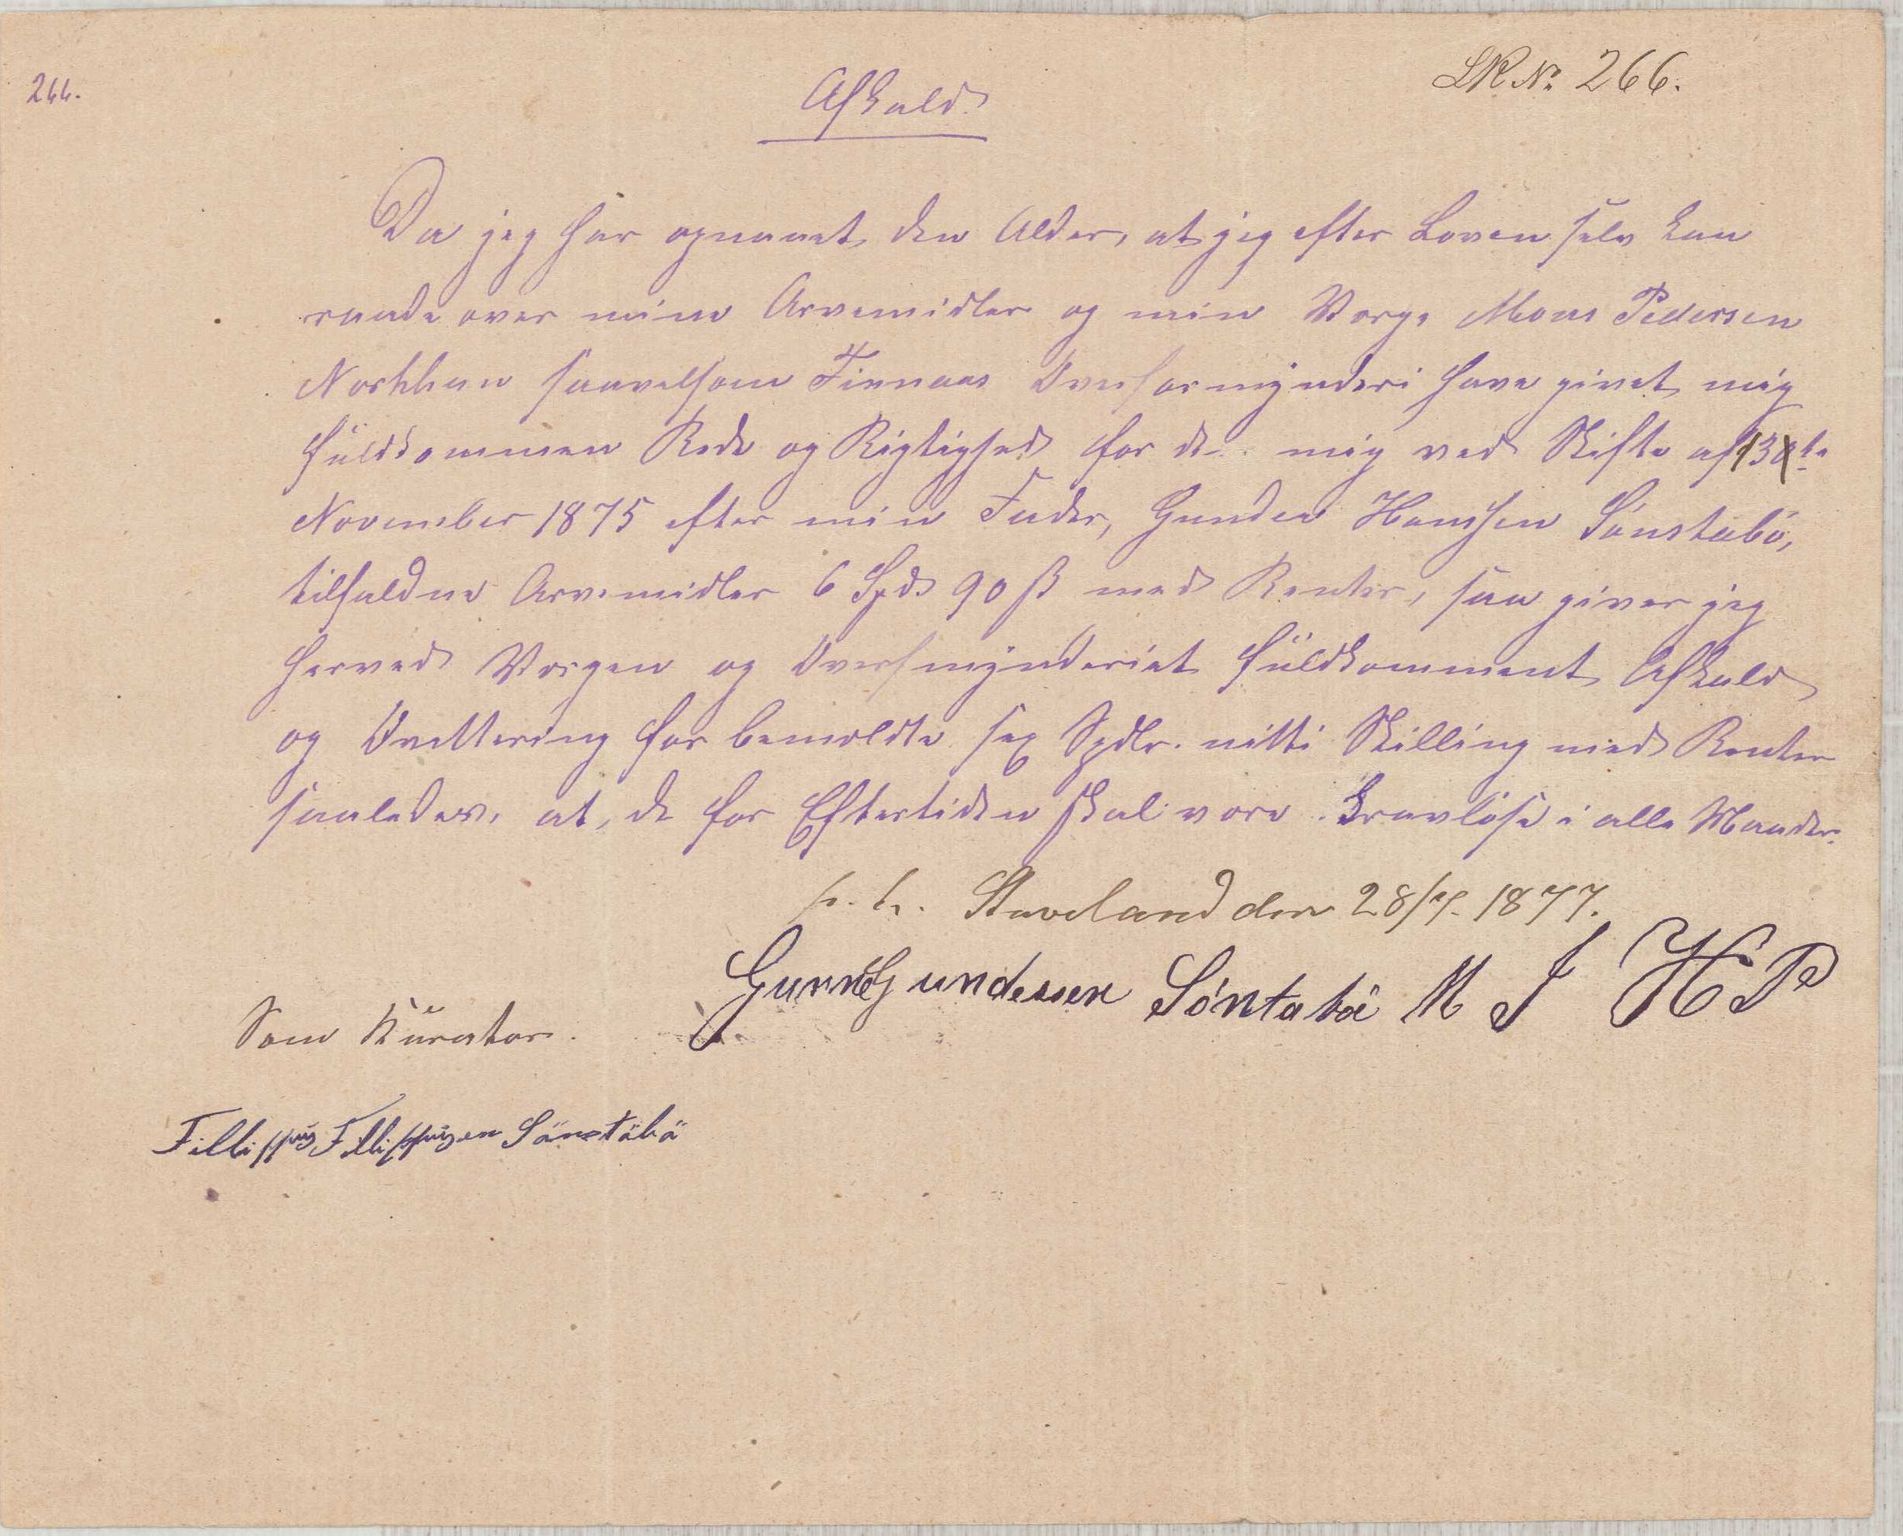 266.
LR No 266.
Afkald
Da jeg har opnaaet den Alder, at jeg efter Loven selv kan
raade over mine Arvemidler og min Verge Mons Pedersen
Norkhun saavelsom Finnaas Overformynderi have givet mig
fuldkommen Rede og Rigtighed for de mig ved Skifte af 13de
November 1875 efter min Fader, Gunder Hansen Sönstabö,
tilfaldne Arvemidler 6 Spd. 90 ß med Renter, saa giver jeg
herved Vergen og Overfmynderiet fuldkomment Afkald
og Qvittering for bemeldte sex Spdlr. nitti Skilling med Renter
saaledes, at de for Eftertiden skal være kravløse i alle Maader.
p. t. Staveland den 28/7. 1877.
Gundersen Söntabö M J H P
Som Kurator
Fillippus Fillippusen Sönstäbö